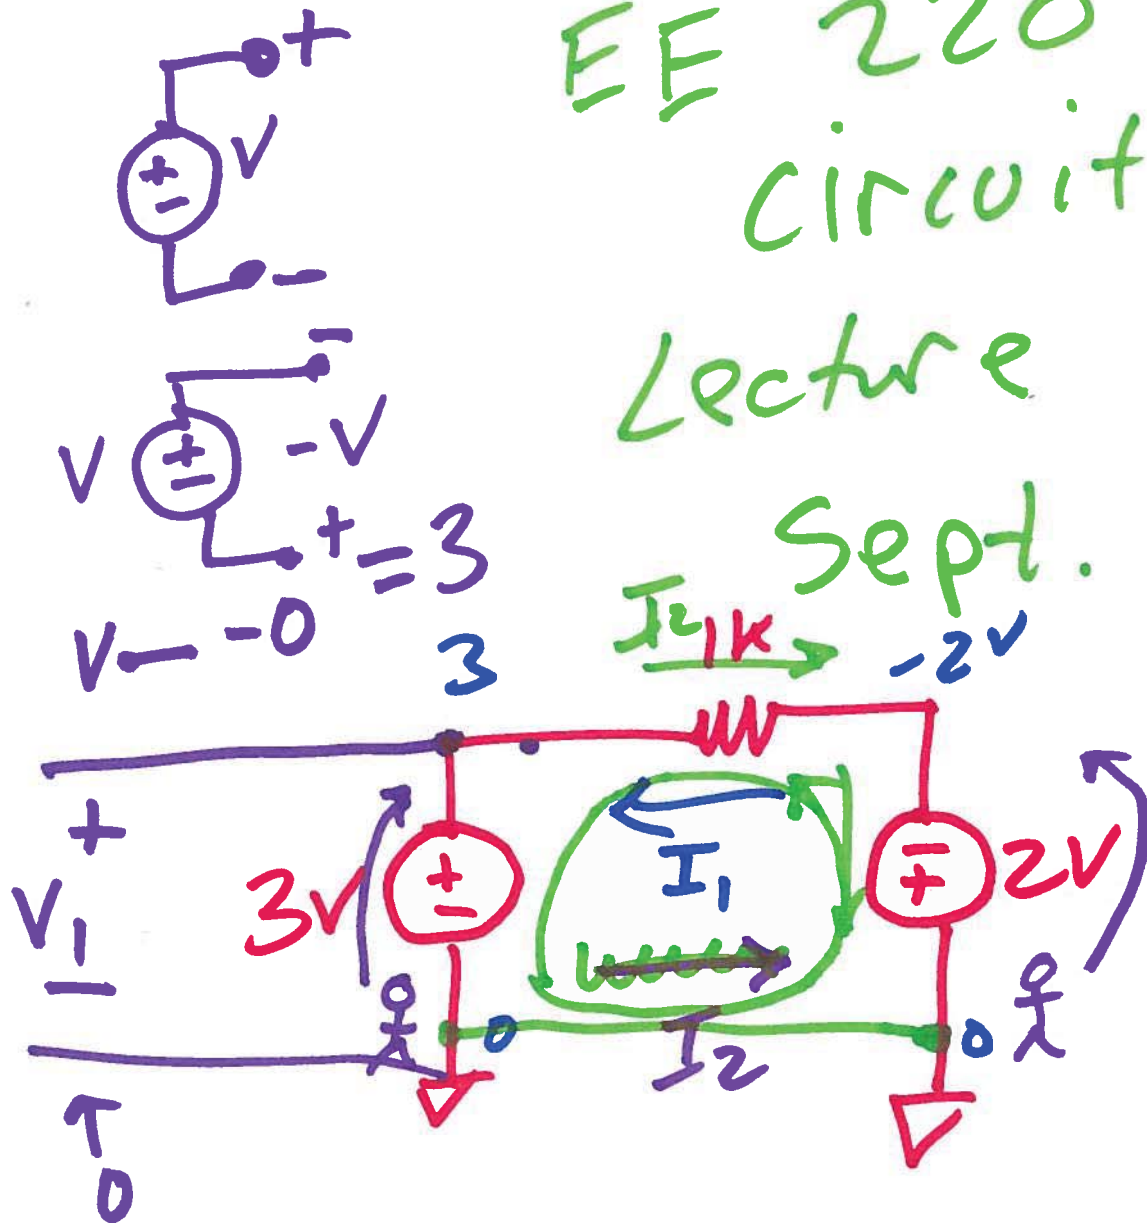 EE 220
circuit
Lecture
Sept.
+
V
+
-
-
-
V
+
-
-V
+ = 3
V - 0
3
I2
1K
-2V
+
V1
-
3V
+
-
I1
-
+
2V
0
I2
0
0